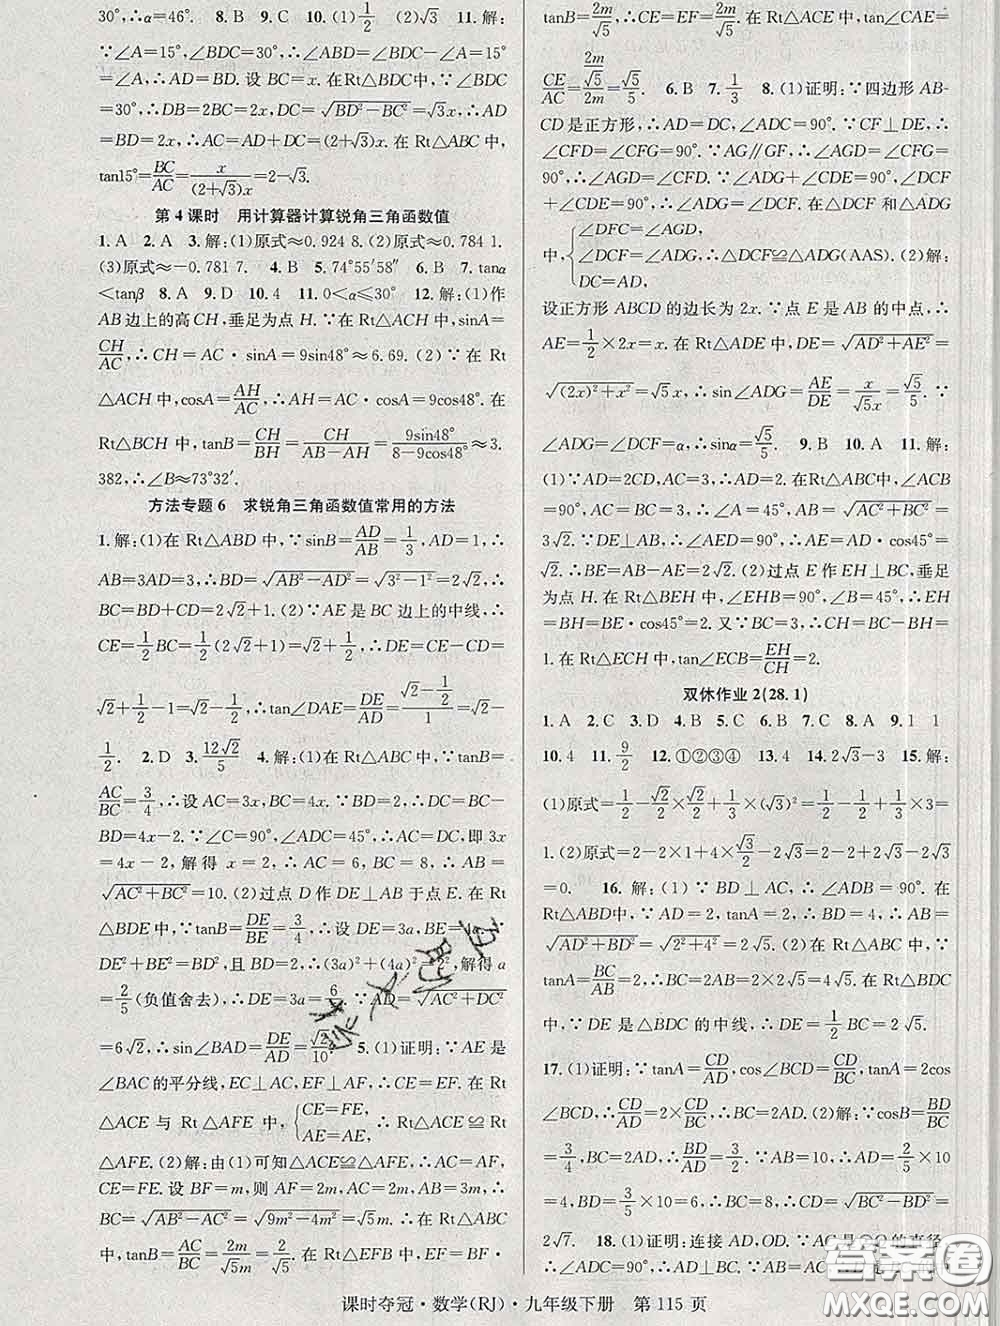 30°;∴α=46°. 8. B 9. C 10. (1)1/2 (2)√3 11. 解:
∵∠A=15°,∠BDC=30°,∴∠ABD=∠BDC-∠A=15°
=∠A,∴AD=BD. 设 BC=x. 在Rt△BDC中,∵∠BDC=
30°,∴DB=2BC=2x,DC=√(BD²-BC²)=√3x,∴AD=
BD=2x,∴AC=AD+DC=(2+√3)x. 在 Rt△ABC 中,
tan15°=BC/AC=x/((2+√3)x)=2-√3.
第 4 课时 用计算器计算锐角三角函数值
1. A 2. A 3. 解:(1)原式≈0. 924 8. (2)原式≈0. 784 1.
(3)原式≈-0. 781 7. 4. B 5. 74°55′58″ 6. B 7. tanα
<tanβ 8. A 9. D 10. 4 11. 0<α≤30° 12. 解:(1)作
AB 边上的高 CH,垂足为点 H. ∵在 Rt△ACH 中,sinA=
CH/AC,∴CH=AC·sinA=9sin48°≈6. 69. (2)∵在 Rt
△ACH 中,cosA=AH/AC,∴AH=AC·cosA=9cos48°. 在
Rt△BCH 中,tanB=CH/BH=CH/(AB-AH)=9sin48°/(8-9cos48°)≈3.
382,∴∠B≈73°32′.
方法专题 6 求锐角三角函数值常用的方法
1. 解:(1)在 Rt△ABD 中,∵sinB=AD/AB=1/3,AD=1,∴
AB=3AD=3,∴BD=√(AB²-AD²)=√(3²-1²)=2√2,∴
BC=BD+CD=2√2+1. (2)∵AE 是 BC 边上的中线,∴
CE=1/2BC=1/2(2√2+1)=√2+1/2,∴DE=CE-CD=
√2+1/2-1=√2-1/2,∴tan∠DAE=DE/AD=(√2-1/2)/1=√2-
1/2. 2. D 3. 12√2/5 4. 解:(1)在 Rt△ABC 中,∵tanB=
AC/BC=3/4,∴设 AC=3x,BC=4x. ∵BD=2,∴DC=BC-
BD=4x-2. ∵∠C=90°,∠ADC=45°,∴AC=DC,即 3x
=4x-2,解得 x=2,∴AC=6,BC=8,∴AB=
√(AC²+BC²)=10. (2)过点 D 作 DE⊥AB 于点 E. 在 Rt
△BDE 中,∵tanB=DE/BE=3/4,∴设 DE=3a,BE=4a. ∵
DE²+BE²=BD²,且 BD=2,∴(3a)²+(4a)²=2²,解得 a
=2/5(负值舍去),∴DE=3a=6/5. ∵AD=√(AC²+DC²)
=6√2,∴sin∠BAD=DE/AD=√2/10. 5. (1)证明:∵AE 是
∠BAC 的平分线,EC⊥AC,EF⊥AF,∴CE=EF. 在 Rt
△ACE 与 Rt△AFE 中,{CE=FE, AE=AE, ∴Rt△ACE≌Rt
△AFE. (2)解:由(1)可知△ACE≌△AFE,∴AC=AF,
CE=FE. 设 BF=m,则 AF=2m,AC=2m,AB=3m,∴
BC=√(AB²-AC²)=√(9m²-4m²)=√5m. ∴在 Rt△ABC
中,tanB=AC/BC=2m/√5m=2/√5. 在 Rt△EFB 中,EF=BF·
tanB=2m/√5,∴CE=EF=2m/√5. 在 Rt△ACE 中,tan∠CAE=
CE/AC=(2m/√5)/2m=√5/5. 6. B 7. 1/3 8. (1)证明:∵四边形 AB-
CD 是正方形,∴AD=DC,∠ADC=90°. ∵CF⊥DE,∴
∠CFD=∠CFG=90°. ∵AG∥GF,∴∠AGD=∠CFG=
90°,∴∠AGD=∠CFD. 又∵∠CDF+∠ADG=∠DCF
+∠CDF,∴∠ADG=∠DCF. ∴在△DCF 和△ADG
中,{∠DFC=∠AGD, ∠DCF=∠ADG, DC=AD, ∴△DCF≌△ADG(AAS). (2)解:
设正方形 ABCD 的边长为 2x. ∵点 E 是 AB 的中点,∴
AE=1/2×2x=x. 在 Rt△ADE 中,DE=√(AD²+AE²)=
√((2x)²+x²)=√5x,∴sin∠ADG=AE/DE=x/√5x=√5/5. ∵
∠ADG=∠DCF=α,∴sinα=√5/5. 9. B 10. A 11. 解:
(1)∵AD=2CD,AC=3,∴AD=2. 在Rt△ABC中,∠ACB
=90°,AC=BC=3,∴∠A=45°,AB=√(AC²+BC²)=
3√2. ∵DE⊥AB,∴∠AED=90°,∴AE=AD·cos45°=
√2. ∴BE=AB-AE=2√2. (2)过点 E 作 EH⊥BC,垂足
为点 H. 在 Rt△BEH 中,∠EHB=90°,∠B=45°,∴EH
=BH=BE·cos45°=2. 又∵BC=3,∴CH=BC-BH=
1. 在 Rt△ECH 中,tan∠ECB=EH/CH=2.
双休作业 2(28. 1)
1. A 2. C 3. D 4. B 5. C 6. B 7. C 8. A 9. 1 1
10. 4 11. 9/2 12. ①②③④ 13. 4 14. 2√3-3 15. 解:
(1)原式=1/2-√2/2×√2/2+1/3×(√3)²=1/2-1/2+1/3×3=
1. (2)原式=2-2×1+4×√3/2-2√3=2-2+2√3-2√3
=0. 16. 解:(1)∵BD⊥AC,∴∠ADB=90°. 在
Rt△ABD中,∵AD=2,tanA=2,∴BD=4,∴AB=
√(AD²+BD²)=√(2²+4²)=2√5. (2)在 Rt△ABC 中,∵
tanA=BC/AB=2,∴BC=2AB=2×2√5=4√5. 在 Rt△BDC
中,∵DE 是△BDC 的中线,∴DE=1/2BC=2√5.
17. (1)证明:∵tanA=CD/AD,cos∠BCD=CD/BC,tanA=2cos
∠BCD,∴CD/AD=2·CD/BC,∴BC=2AD. (2)解:∵cosB=BD/BC
=3/4,BC=2AD,∴BD/AD=3/2. ∵AB=10,∴AD=2/5×10
=4,BD=3/5×10=6,∴BC=8,∴CD=√(BC²-BD²)=
2√7. 18. (1)证明:连接 AD,OD. ∵AC是⊙O的直径
课时夺冠·数学(RJ)·九年级下册 第 115 页
答案圈
MXQE.COM